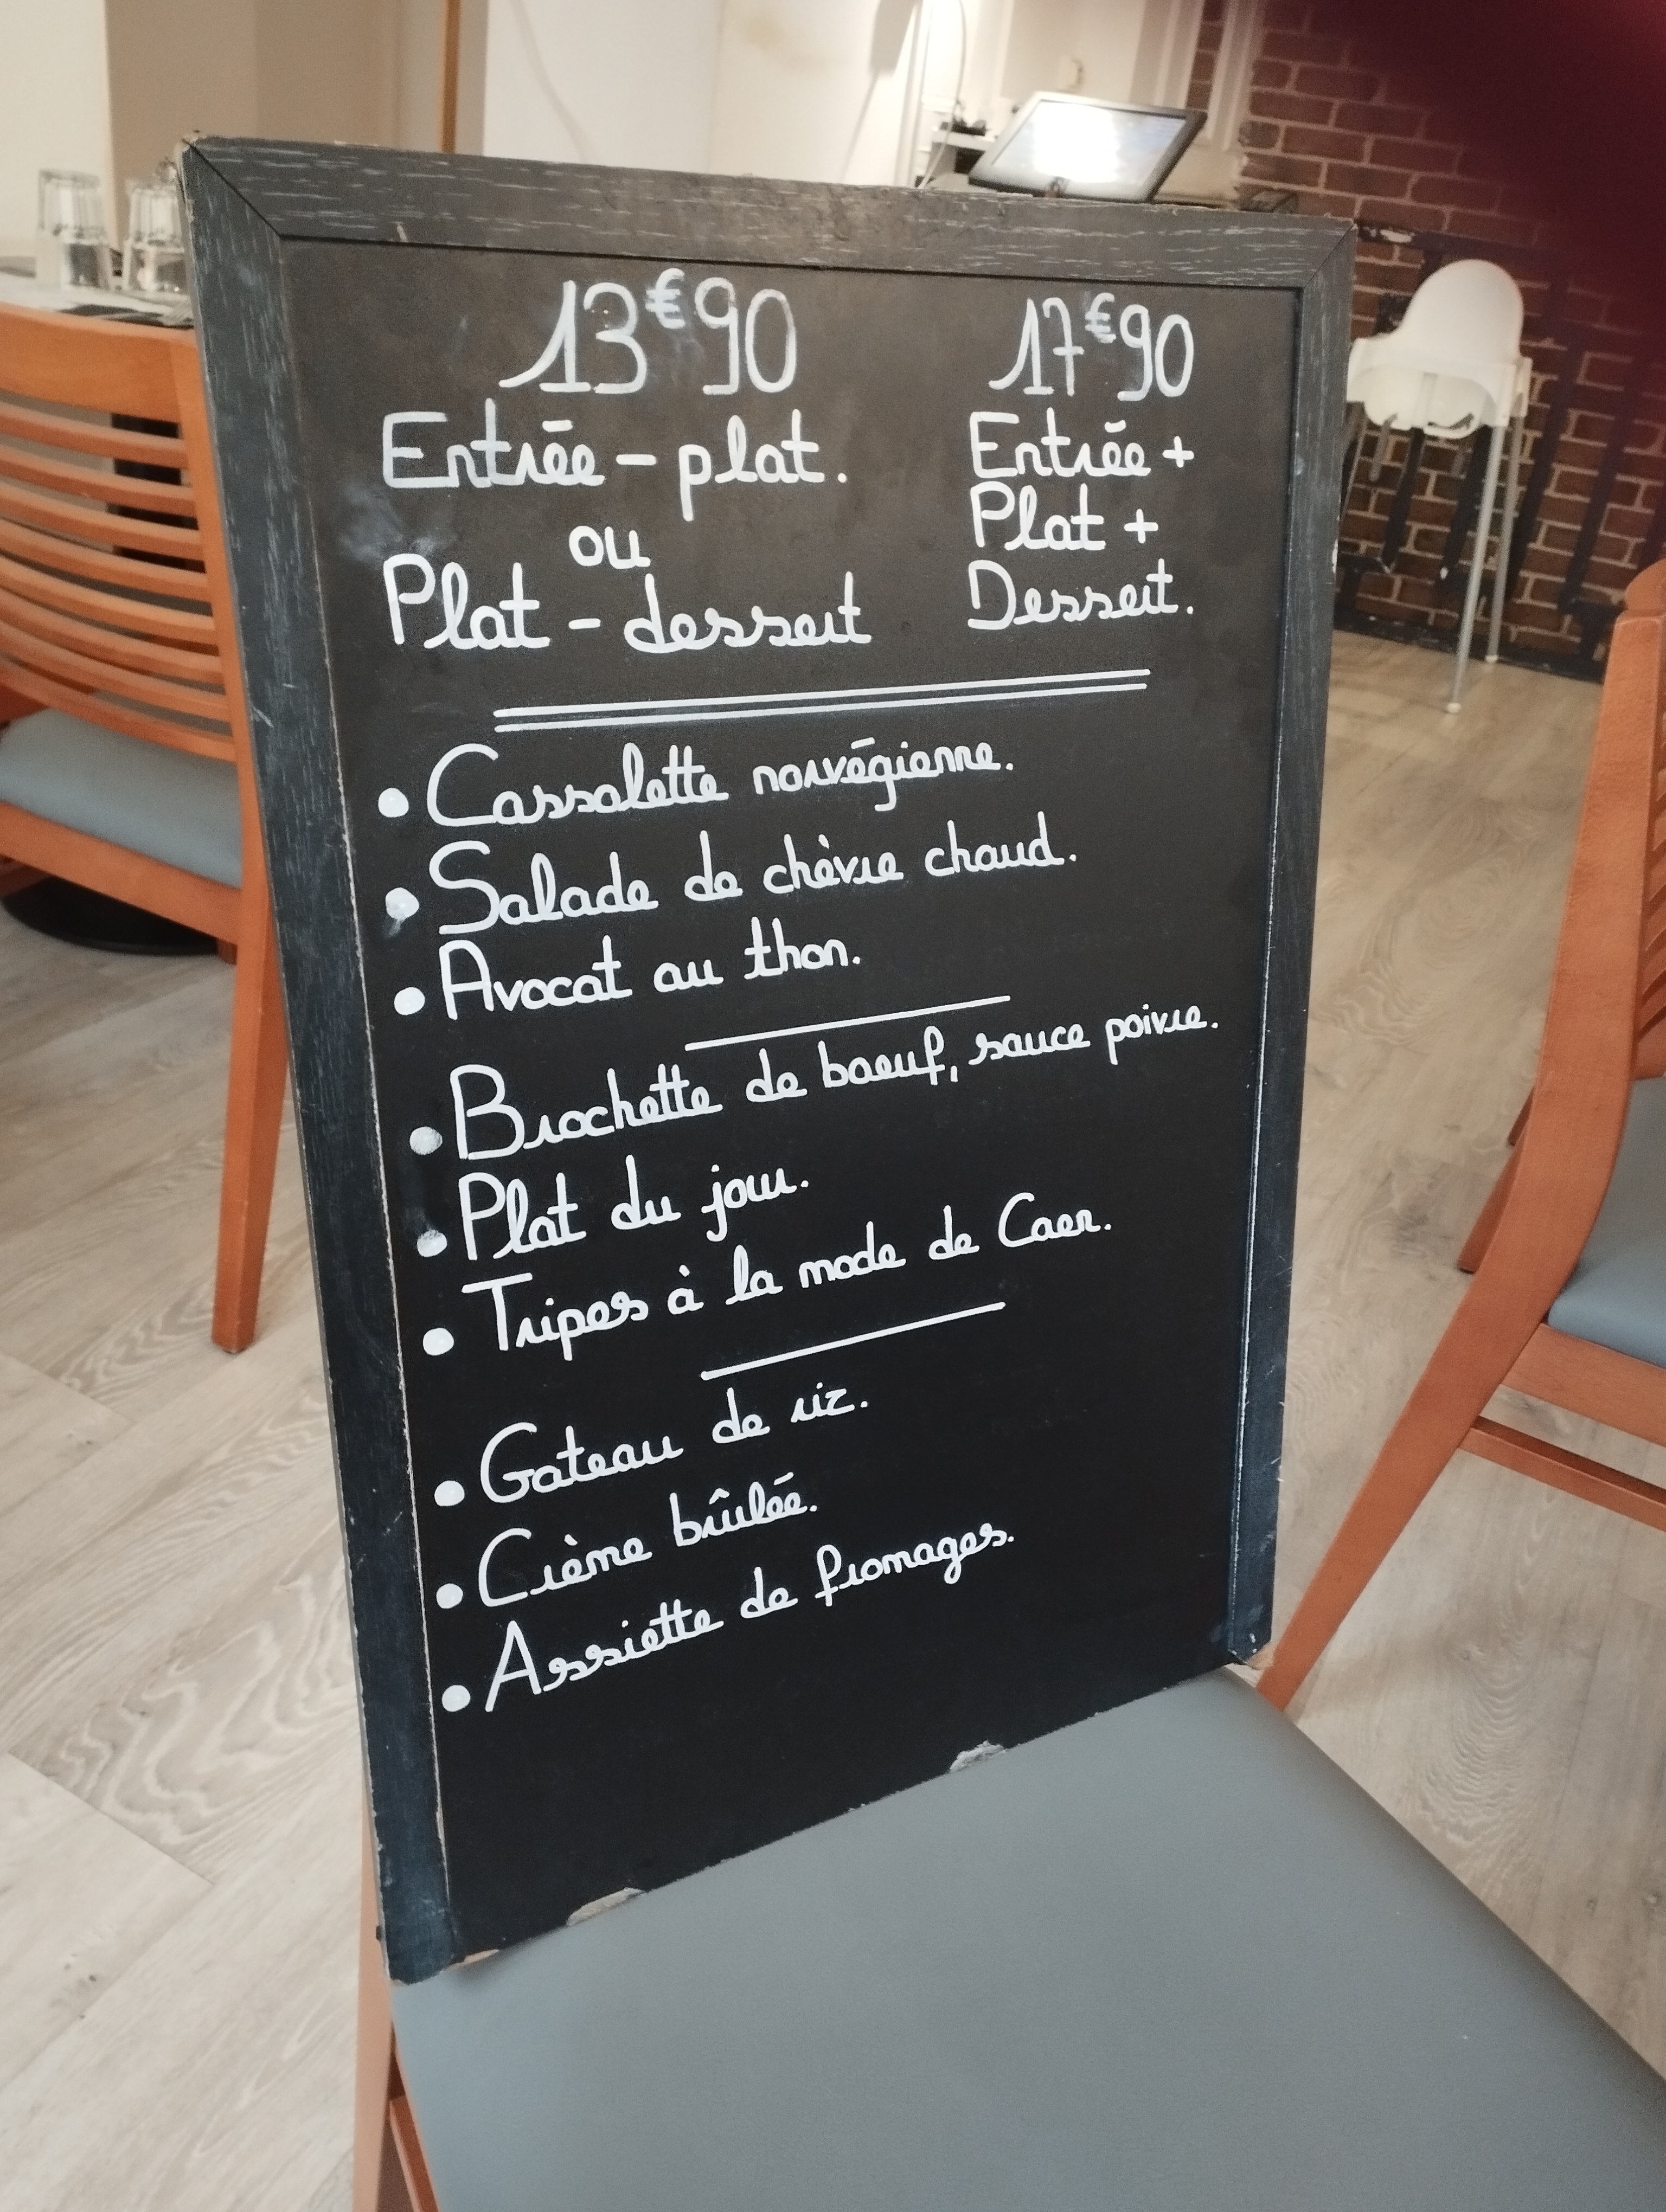 13€90
Entrée - plat.
ou
Plat - dessert
17€90
Entrée +
Plat +
Dessert.
• Cassolette norvégienne.
• Salade de chèvre chaud.
• Avocat au thon.
• Brochette de boeuf, sauce poivre.
• Plat du jour.
• Tripes à la mode de Caen.
• Gateau de riz.
• Crème brûlée.
• Assiette de fromages.